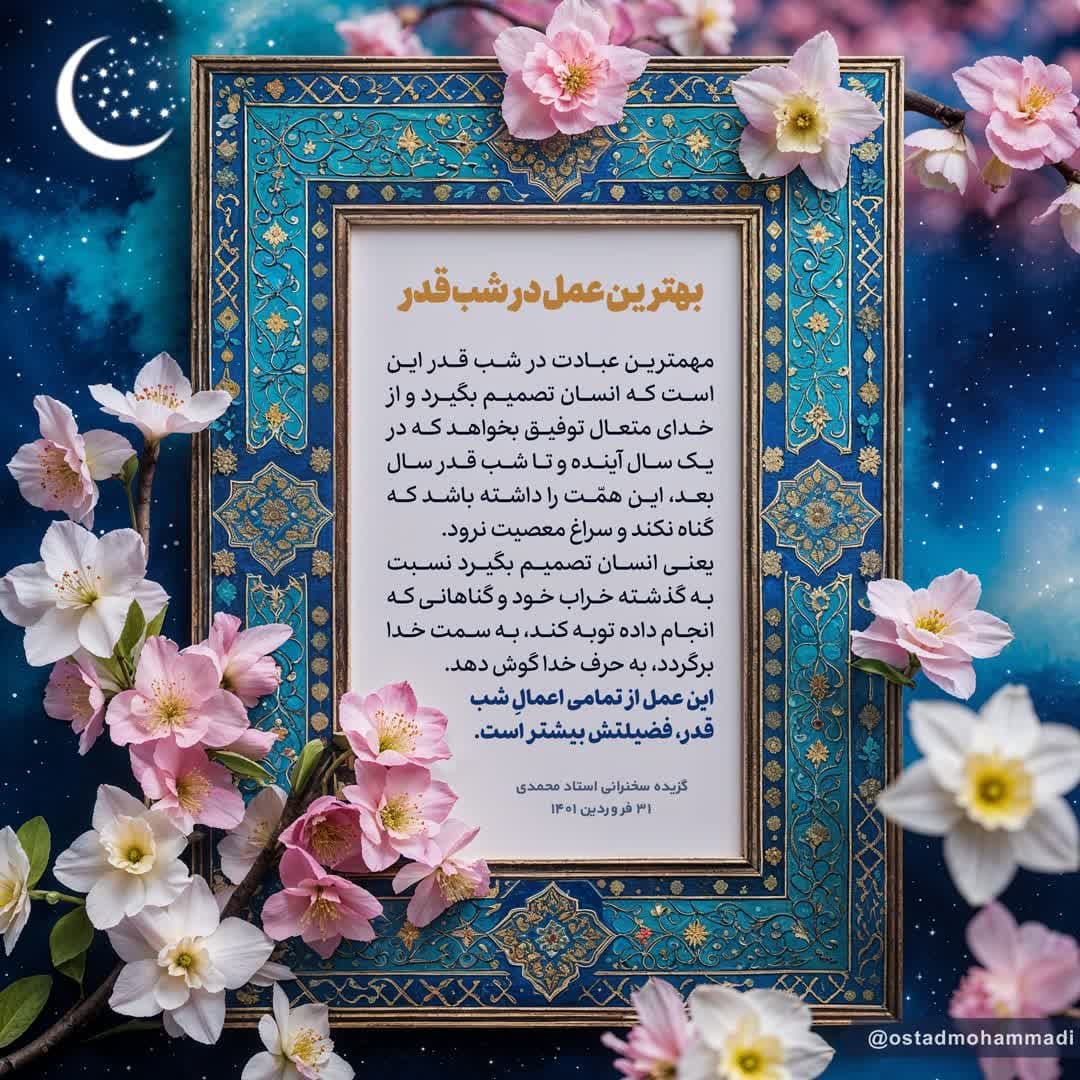 بهترین عمل در شب قدر
مهمترین عبادت در شب قدر این
است که انسان تصمیم بگیرد و از
خدای متعال توفیق بخواهد که در
یک سال آینده و تا شب قدر سال
بعد، این همّت را داشته باشد که
گناه نکند و سراغ معصیت نرود.
یعنی انسان تصمیم بگیرد نسبت
به گذشته خراب خود و گناهانی که
انجام داده توبه کند، به سمت خدا
برگردد، به حرف خدا گوش دهد.
این عمل از تمامی اعمالِ شب
قدر، فضیلتش بیشتر است.
گزیده سخنرانی استاد محمدی
۳۱ فروردین ۱۴۰۱
@ostadmohammadi